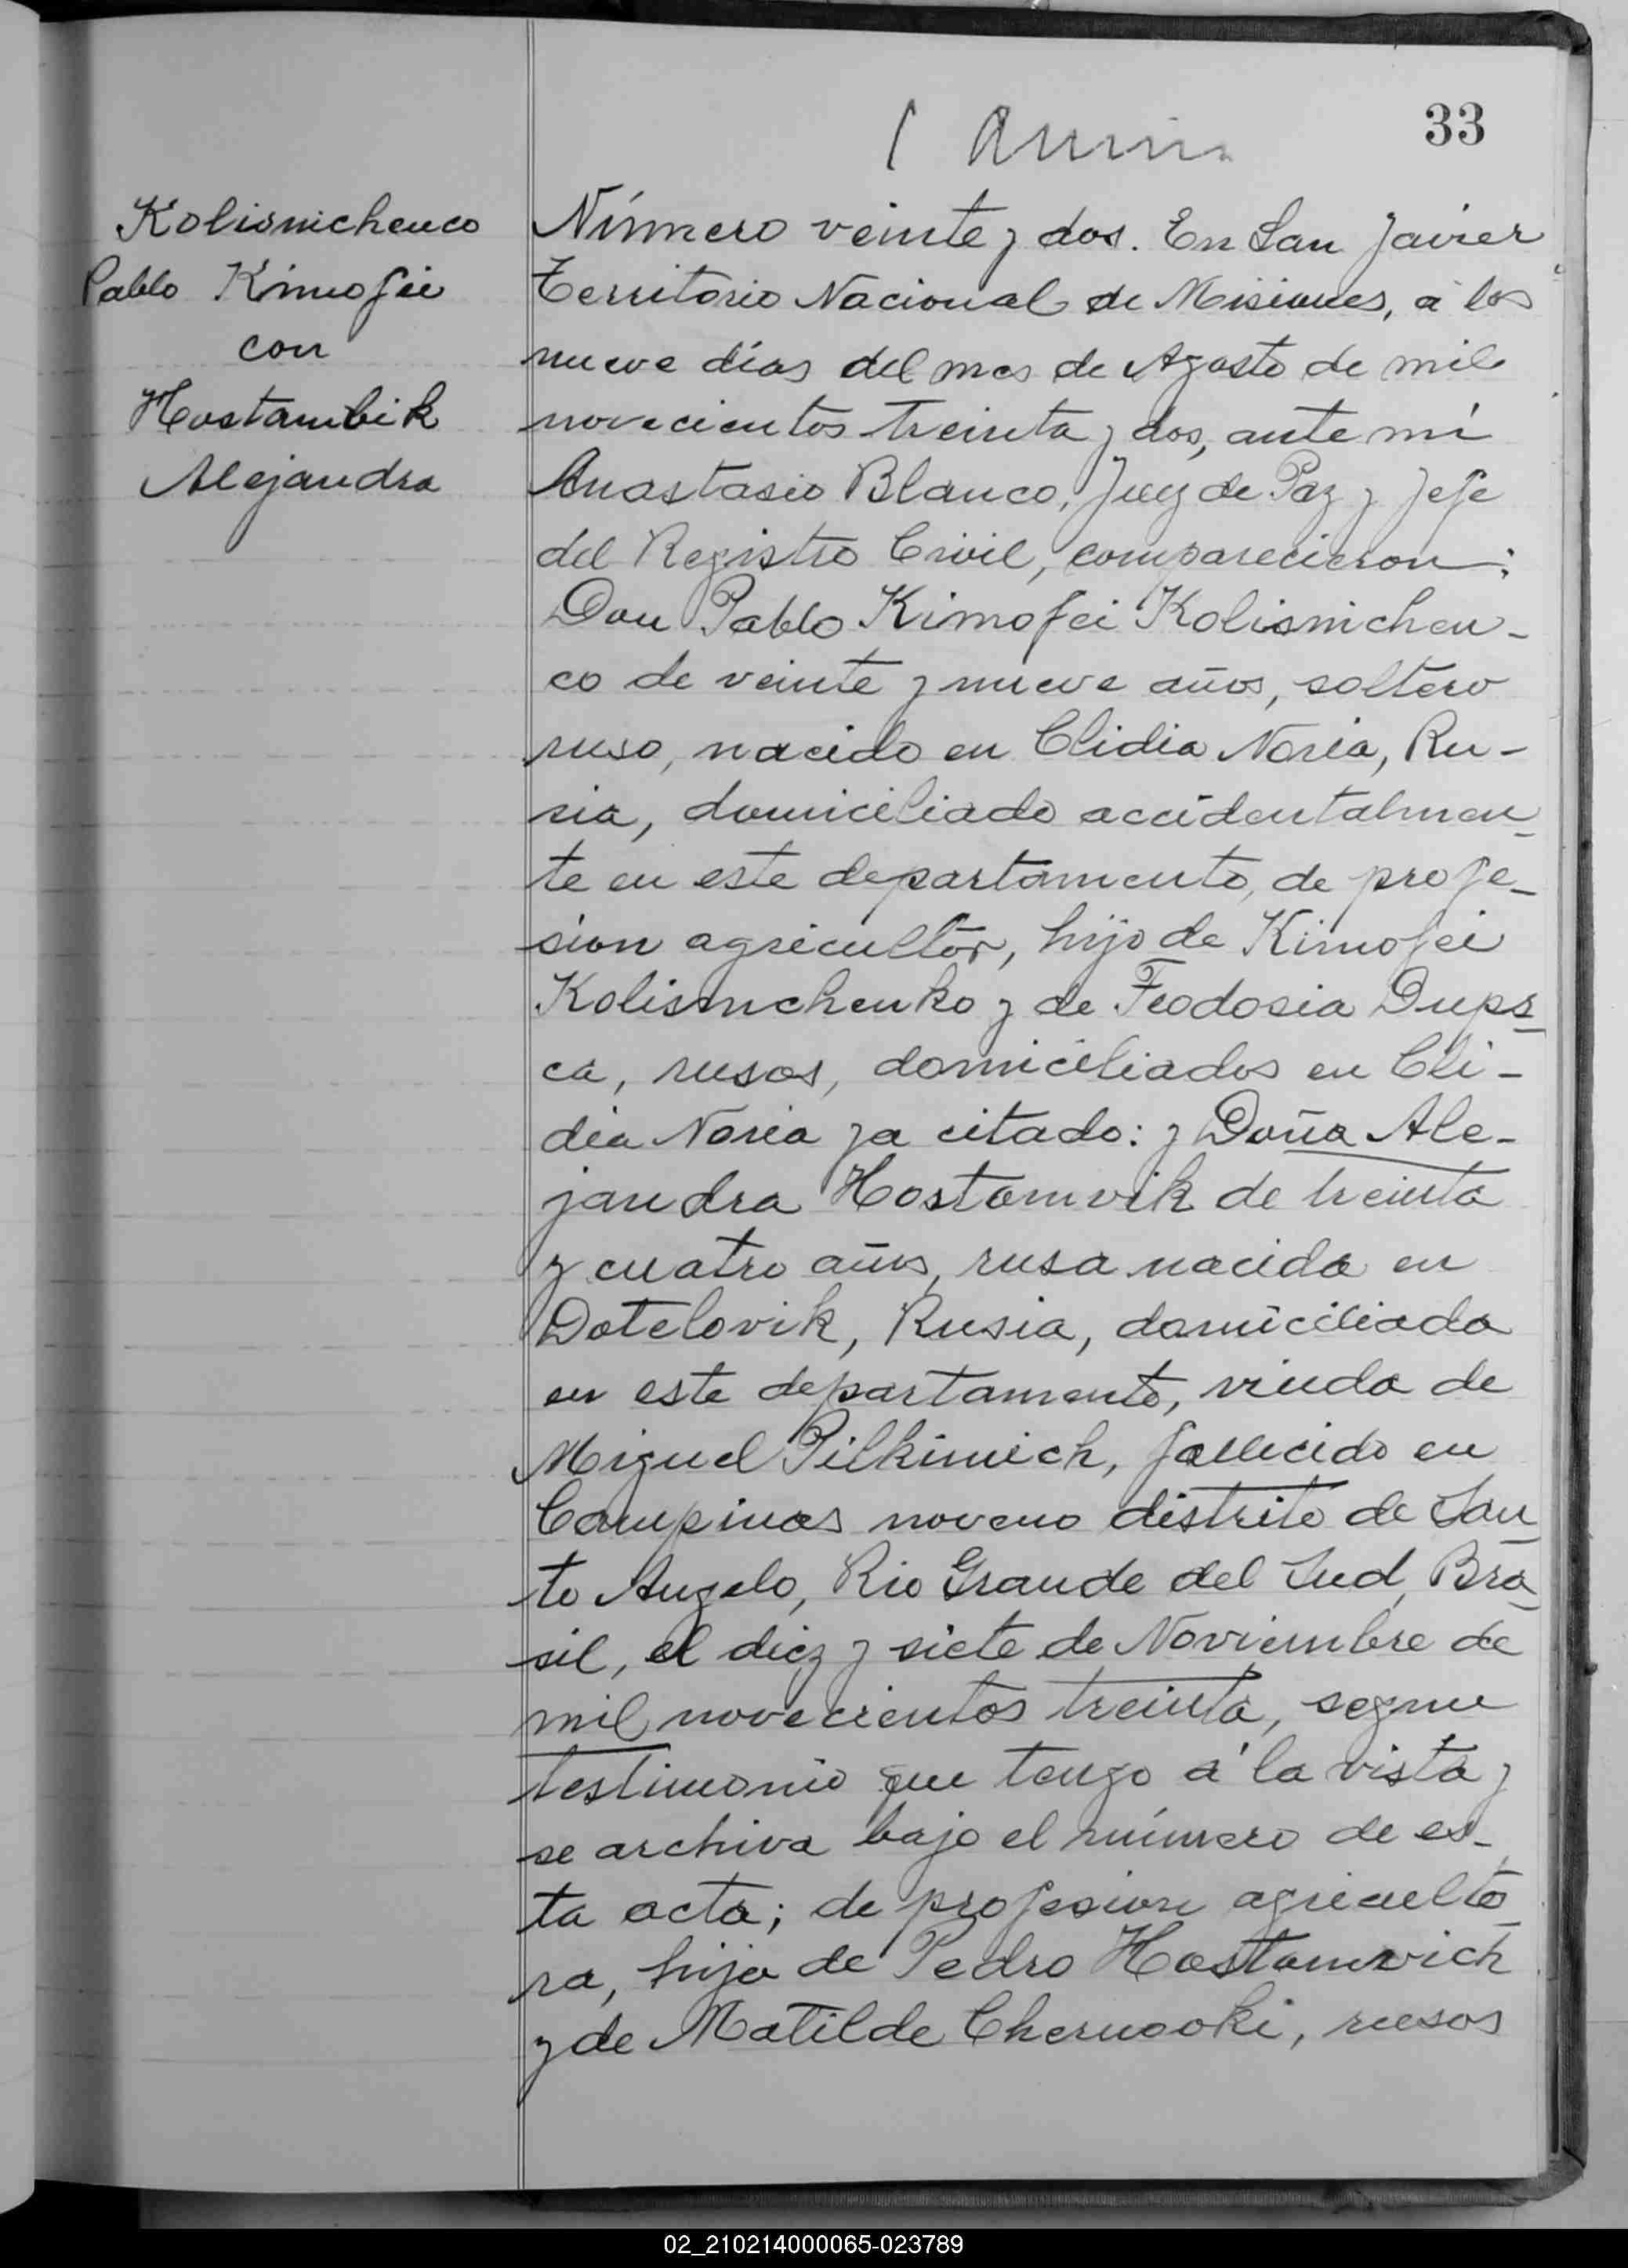 33
Kolisnichenco
Pablo Kimofei
con
Hostambik
Alejandra
Número veinte y dos. En San Javier
Territorio Nacional de Misiones, á los
nueve días del mes de Agosto de mil
novecientos treinta y dos, ante mí
Anastasio Blanco, Juez de Paz y Jefe
del Registro Civil, comparecieron:
Don Pablo Kimofei Kolisnichen-
co de veinte y nueve años, soltero
ruso, nacido en Clidia Noria, Ru-
sia, domiciliado accidentalmen-
te en este departamento, de profe-
sion agricultor, hijo de Kimofei
Kolisnichenko y de Feodosia Dups-
ca, rusos, domiciliados en Cli-
dia Noria ya citado: y Doña Ale-
jandra Hostamvik de treinta
y cuatro años, rusa nacida en
Dotelovik, Rusia, domiciliada
en este departamento, viuda de
Miguel Pilkimich, fallecido en
Campinas noveno distrito de San
to Angelo, Rio Grande del Sud, Bra-
sil, el diez y siete de Noviembre de
mil novecientos treinta, segun
testimonio que tengo á la vista y
se archiva bajo el número de es-
ta acta; de profesion agriculto-
ra, hija de Pedro Hostamvich
y de Matilde Chernooki, rusos
02_210214000065-023789